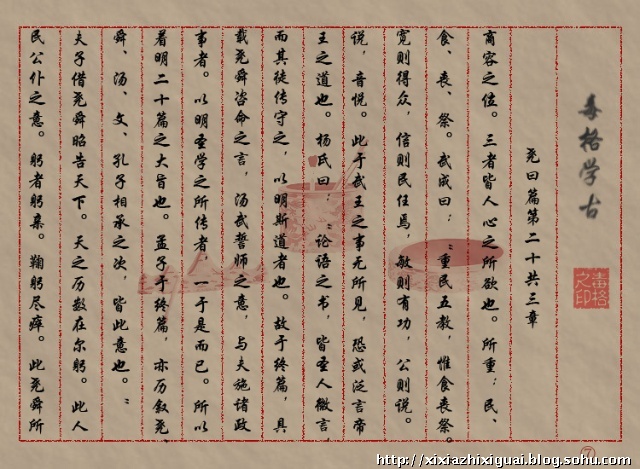 毒格学古
毒格之印
尧曰篇第二十共三章
商容之位。三者皆人心之所欲也。所重：民、
食、丧、祭。武成曰：“重民五教，惟食丧祭。
宽则得众，信则民任焉，敏则有功，公则说。
说，音悦。此于武王之事无所见，恐或泛言帝
王之道也。杨氏曰：“论语之书，皆圣人微言，
而其徒传守之，以明斯道者也。故于终篇，具
载尧舜咨命之言，汤武誓师之意，与夫施诸政
事者。以明圣学之所传者，一于是而已。所以
着明二十篇之大旨也。孟子于终篇，亦历叙尧、
舜、汤、文、孔子相承之次，皆此意也。”
夫子借尧舜昭告天下。天之历数在尔躬。此人
民公仆之意。躬者躬亲。鞠躬尽瘁。此尧舜所
⑦
http://xixiazhixiguai.blog.sohu.com